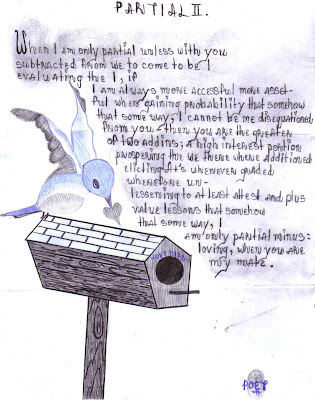 PARTIAL II.
When I am only partial unless with you
subtracted from we to come to be I
evaluating thue I, if
I am always more accessful more asset-
ful when gaining probability that somehow
that some way, I cannot be me disequationed,
from you – then you are the greater
of two addins; a high interest portion
prospering thue we there where additioned
eliciting It's whenever graded
wheretofore un-
lessening to at least attest and plus
value lessons that somehow
that some way, I
am only partial minus:
loving, when you are
my mate.
LOVE BIRD
POET